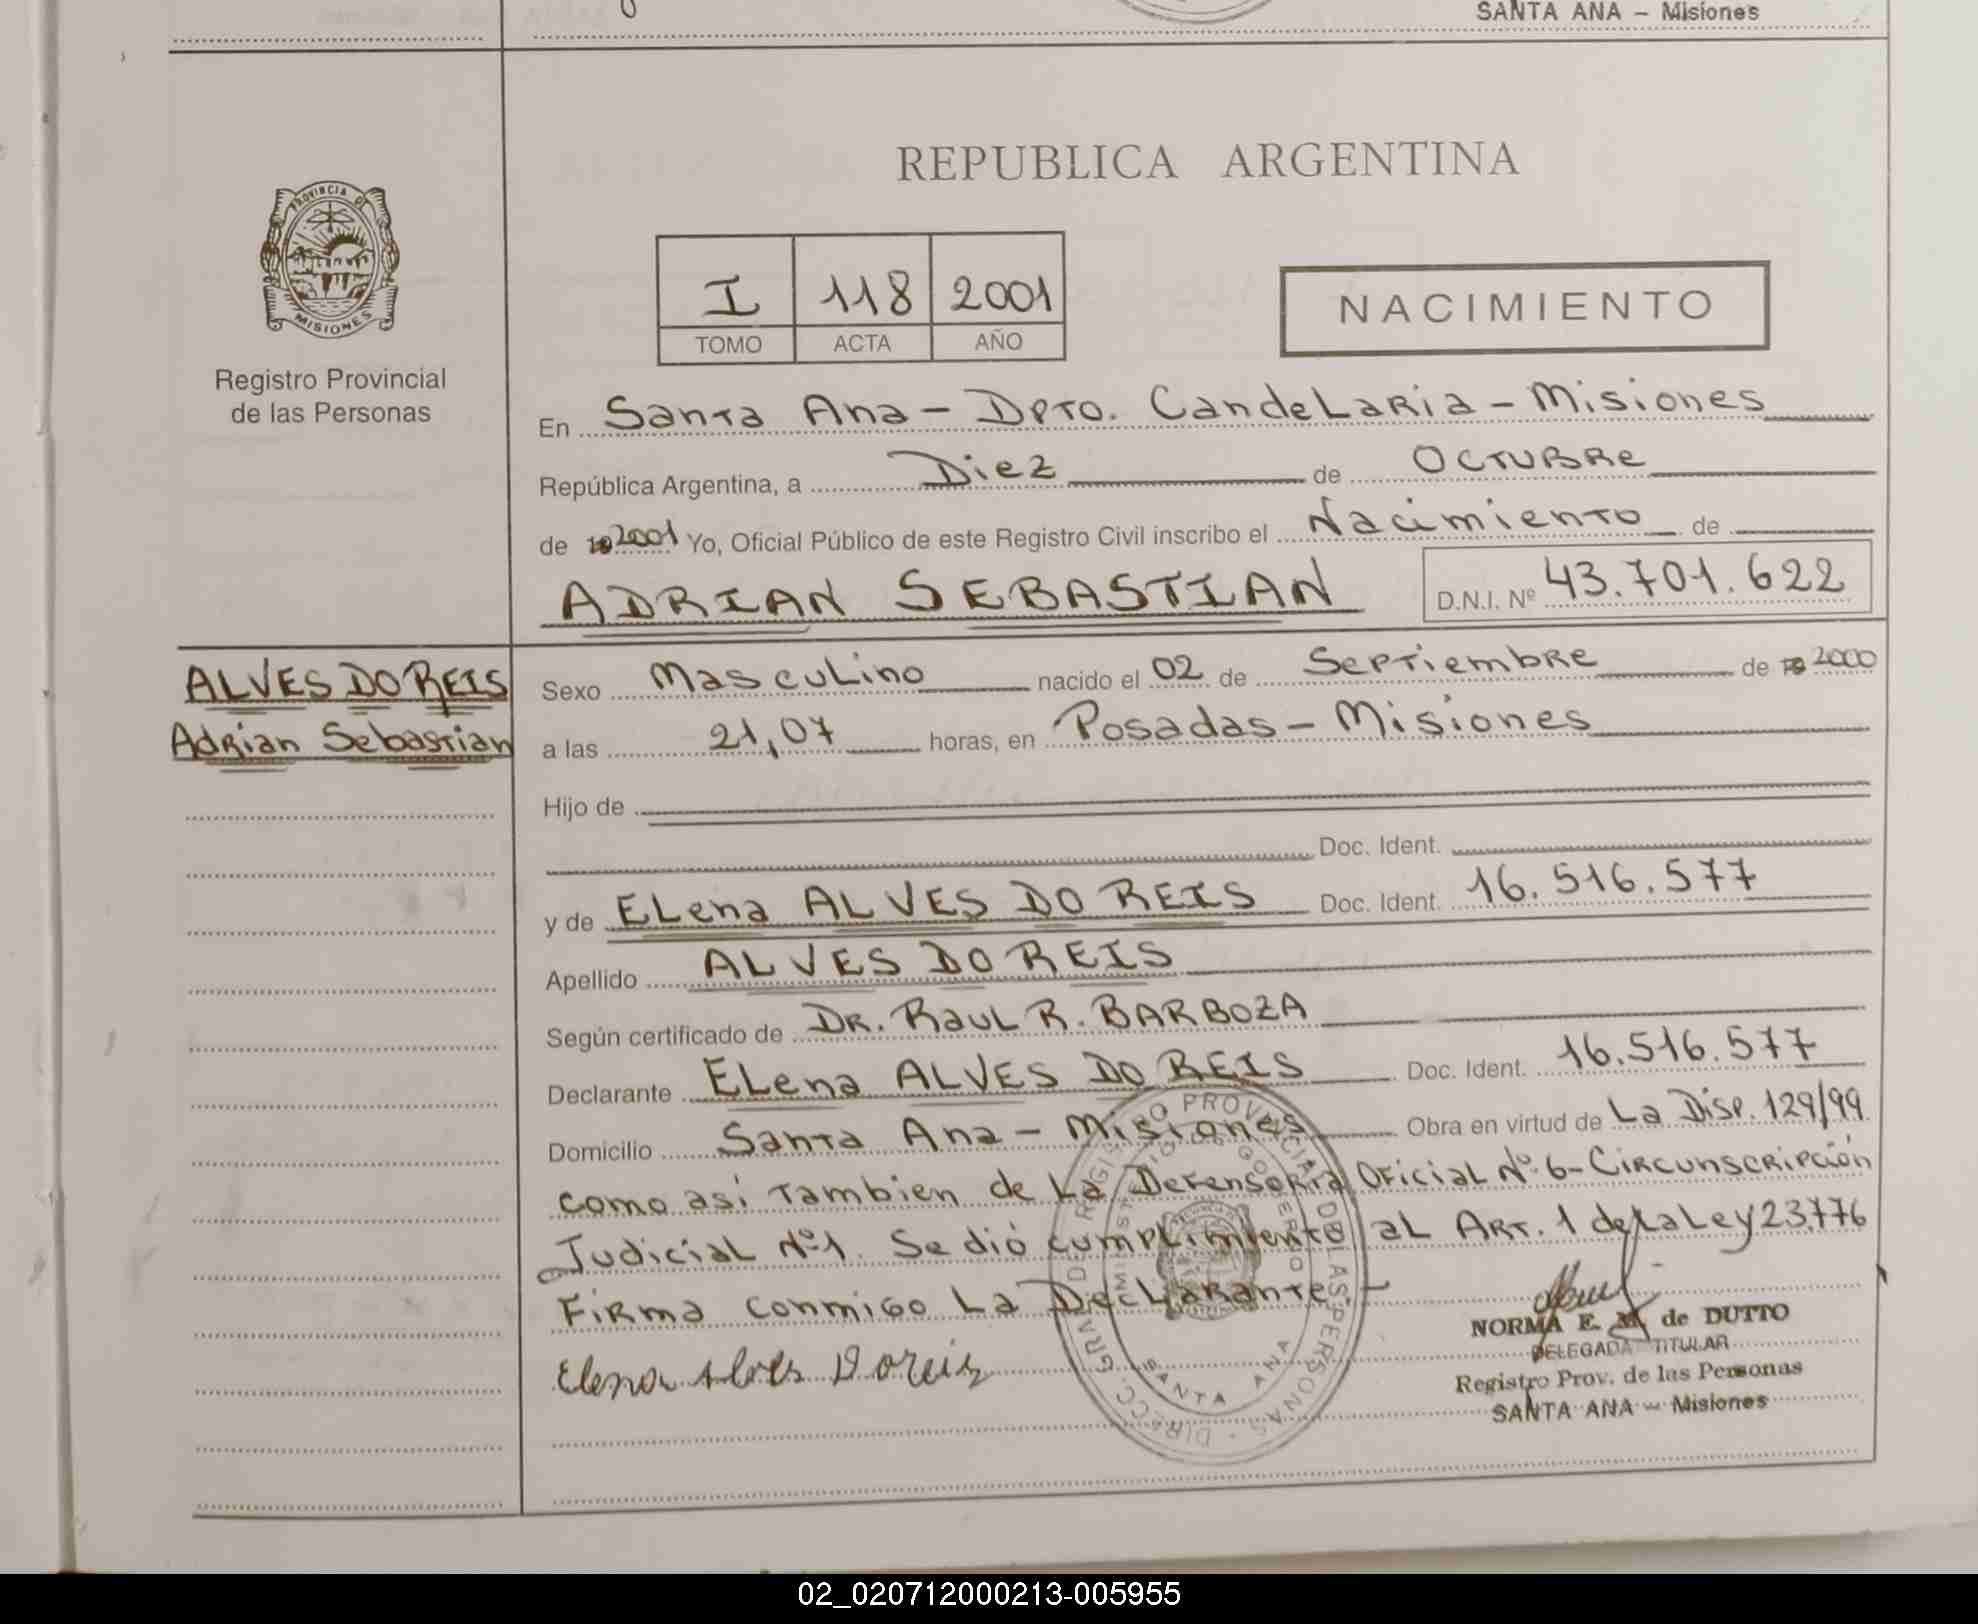 SANTA ANA – Misiones
REPUBLICA ARGENTINA
PROVINCIA DE
MISIONES
Registro Provincial
de las Personas
I 118 2001
TOMO ACTA AÑO
NACIMIENTO
En Santa Ana - Dpto. Candelaria - Misiones
República Argentina, a Diez de Octubre
de 19 2001 Yo, Oficial Público de este Registro Civil inscribo el Nacimiento de
ADRIAN SEBASTIAN D.N.I. Nº 43.701.622
ALVES DO REIS
Adrian Sebastian
Sexo Masculino nacido el 02 de Septiembre de 19 2000
a las 21,07 horas, en Posadas - Misiones
Hijo de
Doc. Ident.
y de Elena ALVES DO REIS Doc. Ident. 16.516.577
Apellido ALVES DO REIS
Según certificado de Dr. Raul R. BARBOZA
Declarante Elena ALVES DO REIS Doc. Ident. 16.516.577
Domicilio Santa Ana - Misiones Obra en virtud de La Disp. 129/99
como asi tambien de La Defensoria Oficial Nº 6 - Circunscripción
Judicial Nº 1. Se dió cumplimiento al Art. 1 de la Ley 23.776
Firma conmigo La Declarante -
Elena Alves Doreis
NORMA E. M. de DUTTO
DELEGADA TITULAR
Registro Prov. de las Personas
SANTA ANA – Misiones
DIRECC. GRAL. DE REGISTRO PROVINCIAL DE LAS PERSONAS
MINISTERIO DE GOBIERNO
SANTA ANA
02_020712000213-005955